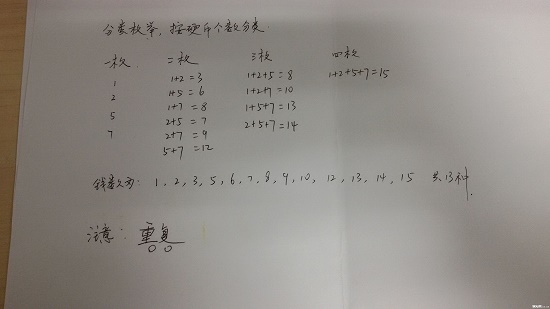 分类枚举，按硬币个数分类.
一枚 二枚 三枚 四枚
1 1+2=3 1+2+5=8 1+2+5+7=15
2 1+5=6 1+2+7=10
5 1+7=8 1+5+7=13
7 2+5=7 2+5+7=14
2+7=9
5+7=12
钱数为: 1, 2, 3, 5, 6, 7, 8, 9, 10, 12, 13, 14, 15 共13种.
注意: 重复